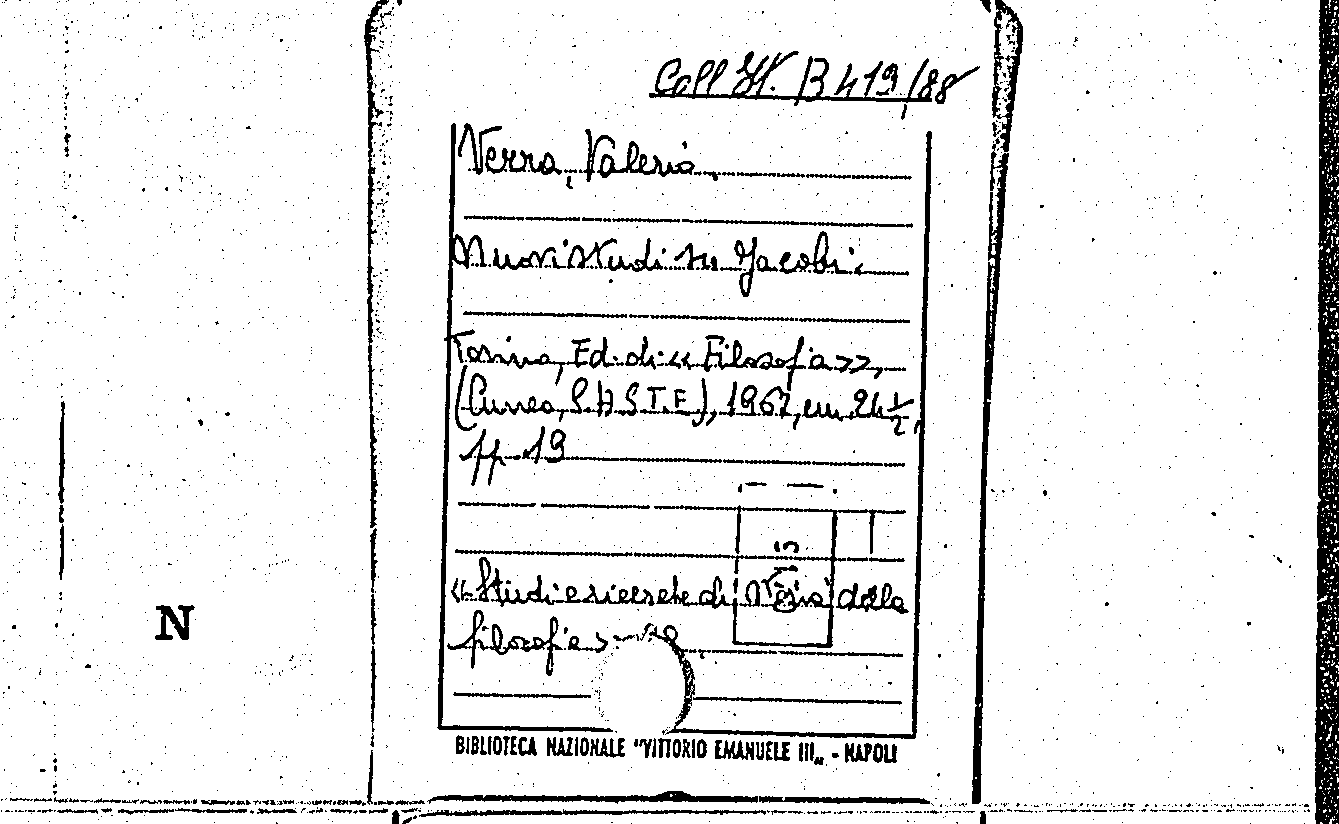 Coll. It. B 419/88
Verra, Valerio.
Nuovi studi su Jacobi.
Torino, Ed. di «Filosofia»,
(Cuneo, S.A.S.T.E.), 1967, cm. 24 1/2,
pp. 19
N
«Studi e ricerche di storia della
filosofia»
BIBLIOTECA NAZIONALE "VITTORIO EMANUELE III„ - NAPOLI